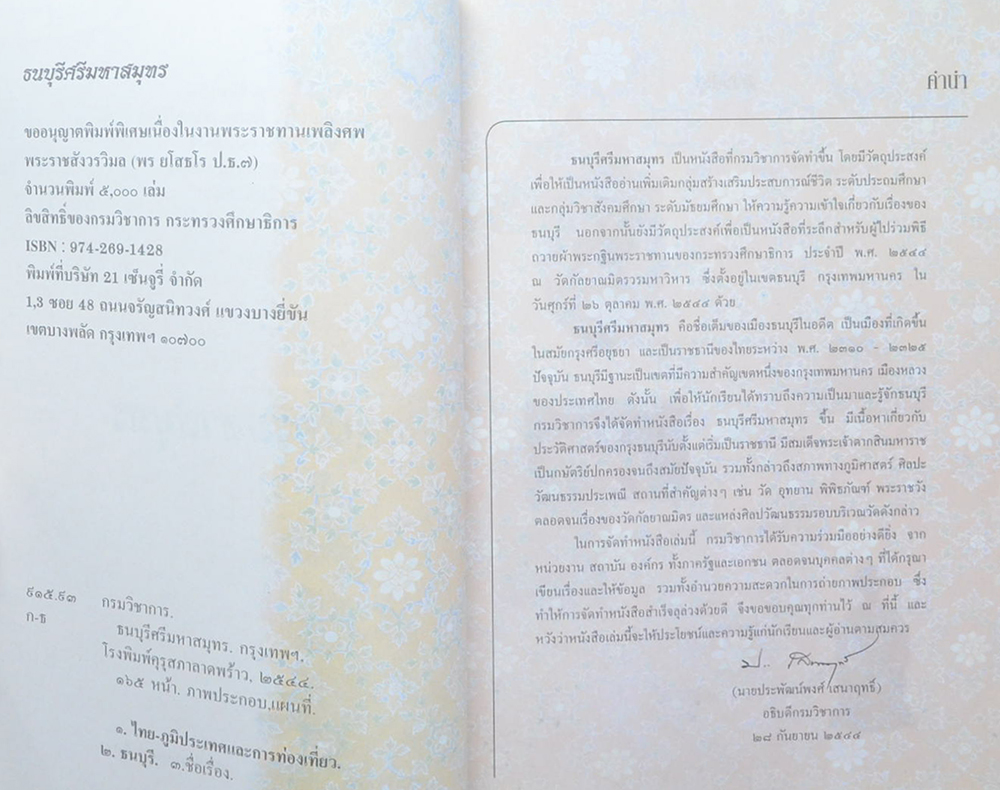 ธนบุรีศรีมหาสมุทร
ขออนุญาตพิมพ์พิเศษเนื่องในงานพระราชทานเพลิงศพ
พระราชสังวรวิมล (พร ยโสธโร ป.ธ.๗)
จำนวนพิมพ์ ๕,๐๐๐ เล่ม
ลิขสิทธิ์ของกรมวิชาการ กระทรวงศึกษาธิการ
ISBN : 974-269-1428
พิมพ์ที่บริษัท 21 เซ็นจูรี่ จำกัด
1,3 ซอย 48 ถนนจรัญสนิทวงศ์ แขวงบางยี่ขัน
เขตบางพลัด กรุงเทพฯ ๑๐๗๐๐
๙๑๕.๙๓ กรมวิชาการ.
ก-ธ ธนบุรีศรีมหาสมุทร. กรุงเทพฯ.
โรงพิมพ์คุรุสภาลาดพร้าว, ๒๕๔๔.
๑๖๕ หน้า. ภาพประกอบ,แผนที่.
๑. ไทย-ภูมิประเทศและการท่องเที่ยว.
๒. ธนบุรี. ๓.ชื่อเรื่อง.
คำนำ
ธนบุรีศรีมหาสมุทร เป็นหนังสือที่กรมวิชาการจัดทำขึ้น โดยมีวัตถุประสงค์
เพื่อให้เป็นหนังสืออ่านเพิ่มเติมกลุ่มสร้างเสริมประสบการณ์ชีวิต ระดับประถมศึกษา
และกลุ่มวิชาสังคมศึกษา ระดับมัธยมศึกษา ให้ความรู้ความเข้าใจเกี่ยวกับเรื่องของ
ธนบุรี นอกจากนั้นยังมีวัตถุประสงค์เพื่อเป็นหนังสือที่ระลึกสำหรับผู้ไปร่วมพิธี
ถวายผ้าพระกฐินพระราชทานของกระทรวงศึกษาธิการ ประจำปี พ.ศ. ๒๕๔๔
ณ วัดกัลยาณมิตรวรมหาวิหาร ซึ่งตั้งอยู่ในเขตธนบุรี กรุงเทพมหานคร ใน
วันศุกร์ที่ ๒๖ ตุลาคม พ.ศ. ๒๕๔๔ ด้วย
ธนบุรีศรีมหาสมุทร คือชื่อเต็มของเมืองธนบุรีในอดีต เป็นเมืองที่เกิดขึ้น
ในสมัยกรุงศรีอยุธยา และเป็นราชธานีของไทยระหว่าง พ.ศ. ๒๓๑๐ - ๒๓๒๕
ปัจจุบัน ธนบุรีมีฐานะเป็นเขตที่มีความสำคัญเขตหนึ่งของกรุงเทพมหานคร เมืองหลวง
ของประเทศไทย ดังนั้น เพื่อให้นักเรียนได้ทราบถึงความเป็นมาและรู้จักธนบุรี
กรมวิชาการจึงได้จัดทำหนังสือเรื่อง ธนบุรีศรีมหาสมุทร ขึ้น มีเนื้อหาเกี่ยวกับ
ประวัติศาสตร์ของกรุงธนบุรีนับตั้งแต่เริ่มเป็นราชธานี มีสมเด็จพระเจ้าตากสินมหาราช
เป็นกษัตริย์ปกครองจนถึงสมัยปัจจุบัน รวมทั้งกล่าวถึงสภาพทางภูมิศาสตร์ ศิลปะ
วัฒนธรรมประเพณี สถานที่สำคัญต่างๆ เช่น วัด อุทยาน พิพิธภัณฑ์ พระราชวัง
ตลอดจนเรื่องของวัดกัลยาณมิตร และแหล่งศิลปวัฒนธรรมรอบบริเวณวัดดังกล่าว
ในการจัดทำหนังสือเล่มนี้ กรมวิชาการได้รับความร่วมมืออย่างดียิ่ง จาก
หน่วยงาน สถาบัน องค์กร ทั้งภาครัฐและเอกชน ตลอดจนบุคคลต่างๆ ที่ได้กรุณา
เขียนเรื่องและให้ข้อมูล รวมทั้งอำนวยความสะดวกในการถ่ายภาพประกอบ ซึ่ง
ทำให้การจัดทำหนังสือสำเร็จลุล่วงด้วยดี จึงขอขอบคุณทุกท่านไว้ ณ ที่นี้ และ
หวังว่าหนังสือเล่มนี้จะให้ประโยชน์และความรู้แก่นักเรียนและผู้อ่านตามสมควร
(นายประพัฒน์พงศ์ เสนาฤทธิ์)
อธิบดีกรมวิชาการ
๒๘ กันยายน ๒๕๔๔